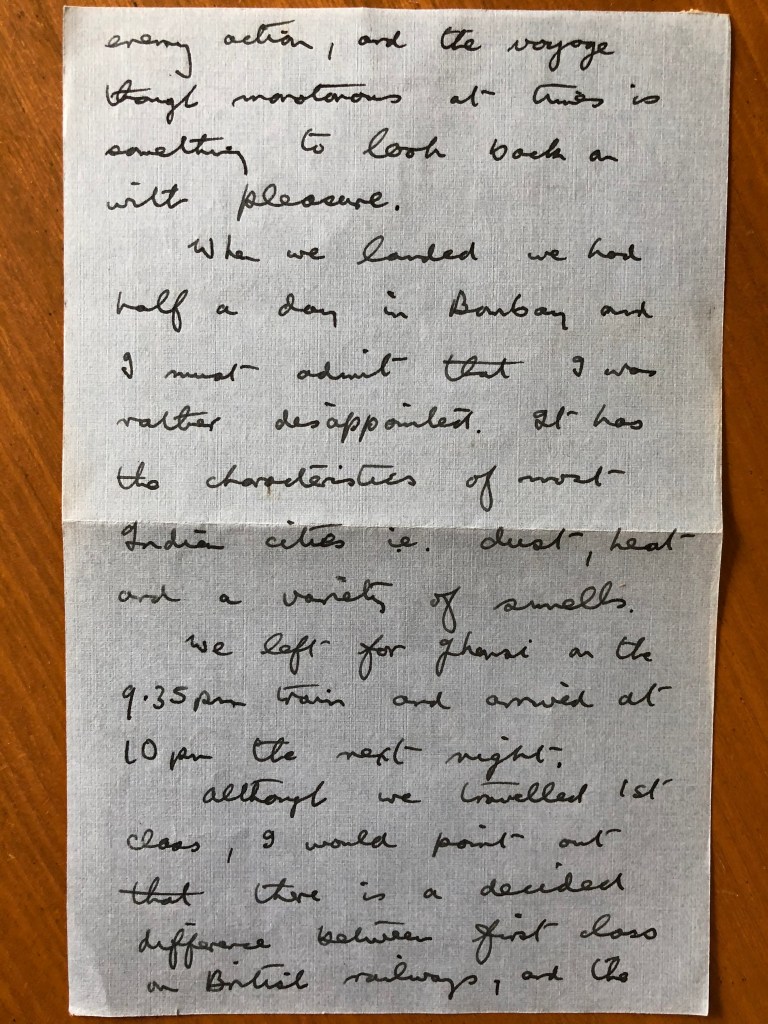 enemy action, and the voyage
though monotonous at times is
something to look back on
with pleasure.
When we landed we had
half a day in Bombay and
I must admit that I was
rather disappointed. It has
the characteristics of most
Indian cities ie. dust, heat
and a variety of smells.
We left for Jhansi on the
9.35pm train and arrived at
10pm the next night.
Although we travelled 1st
class, I would point out
that there is a decided
difference between first class
on British railways, and the